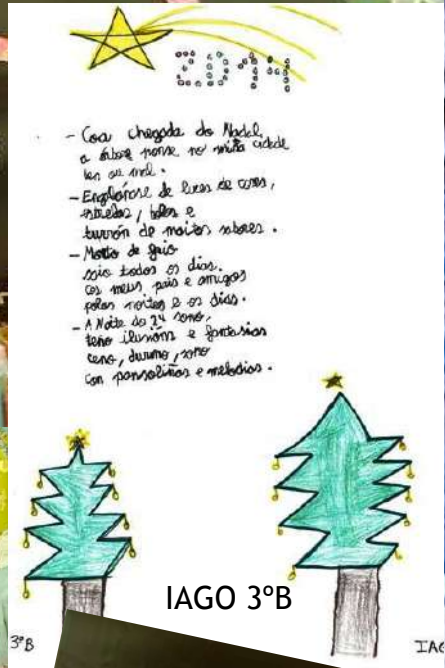 2014
- Coa chegada do Nadal,
a árbore ponse na miña cidade
ben ou mal.
- Engalánase de luces de cores,
estrelas, bolas e
turrón de moitos sabores.
- Motto de gaio
saio todos os dias.
cos meus pais e amigos
polas noites e os dias.
- A Noite do 24 sono,
teño ilusións e fantasias
ceno, durmo, sono
con panxoliñas e melodias.
IAGO 3ºB
3ºB
IAG